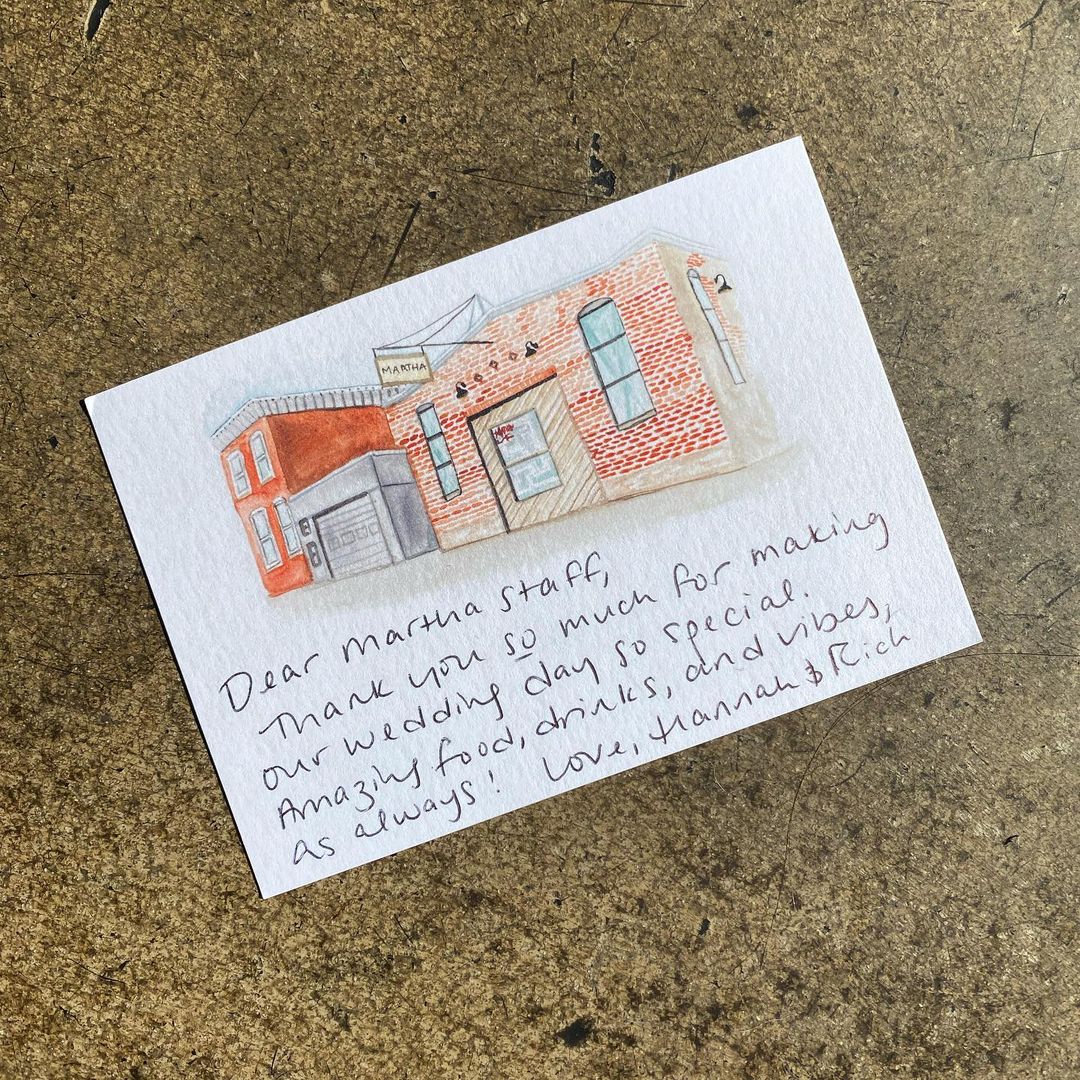 MARTHA
Dear Martha Staff,
Thank you so much for making
our wedding day so special.
Amazing food, drinks, and vibes,
as always! Love, Hannah & Rich